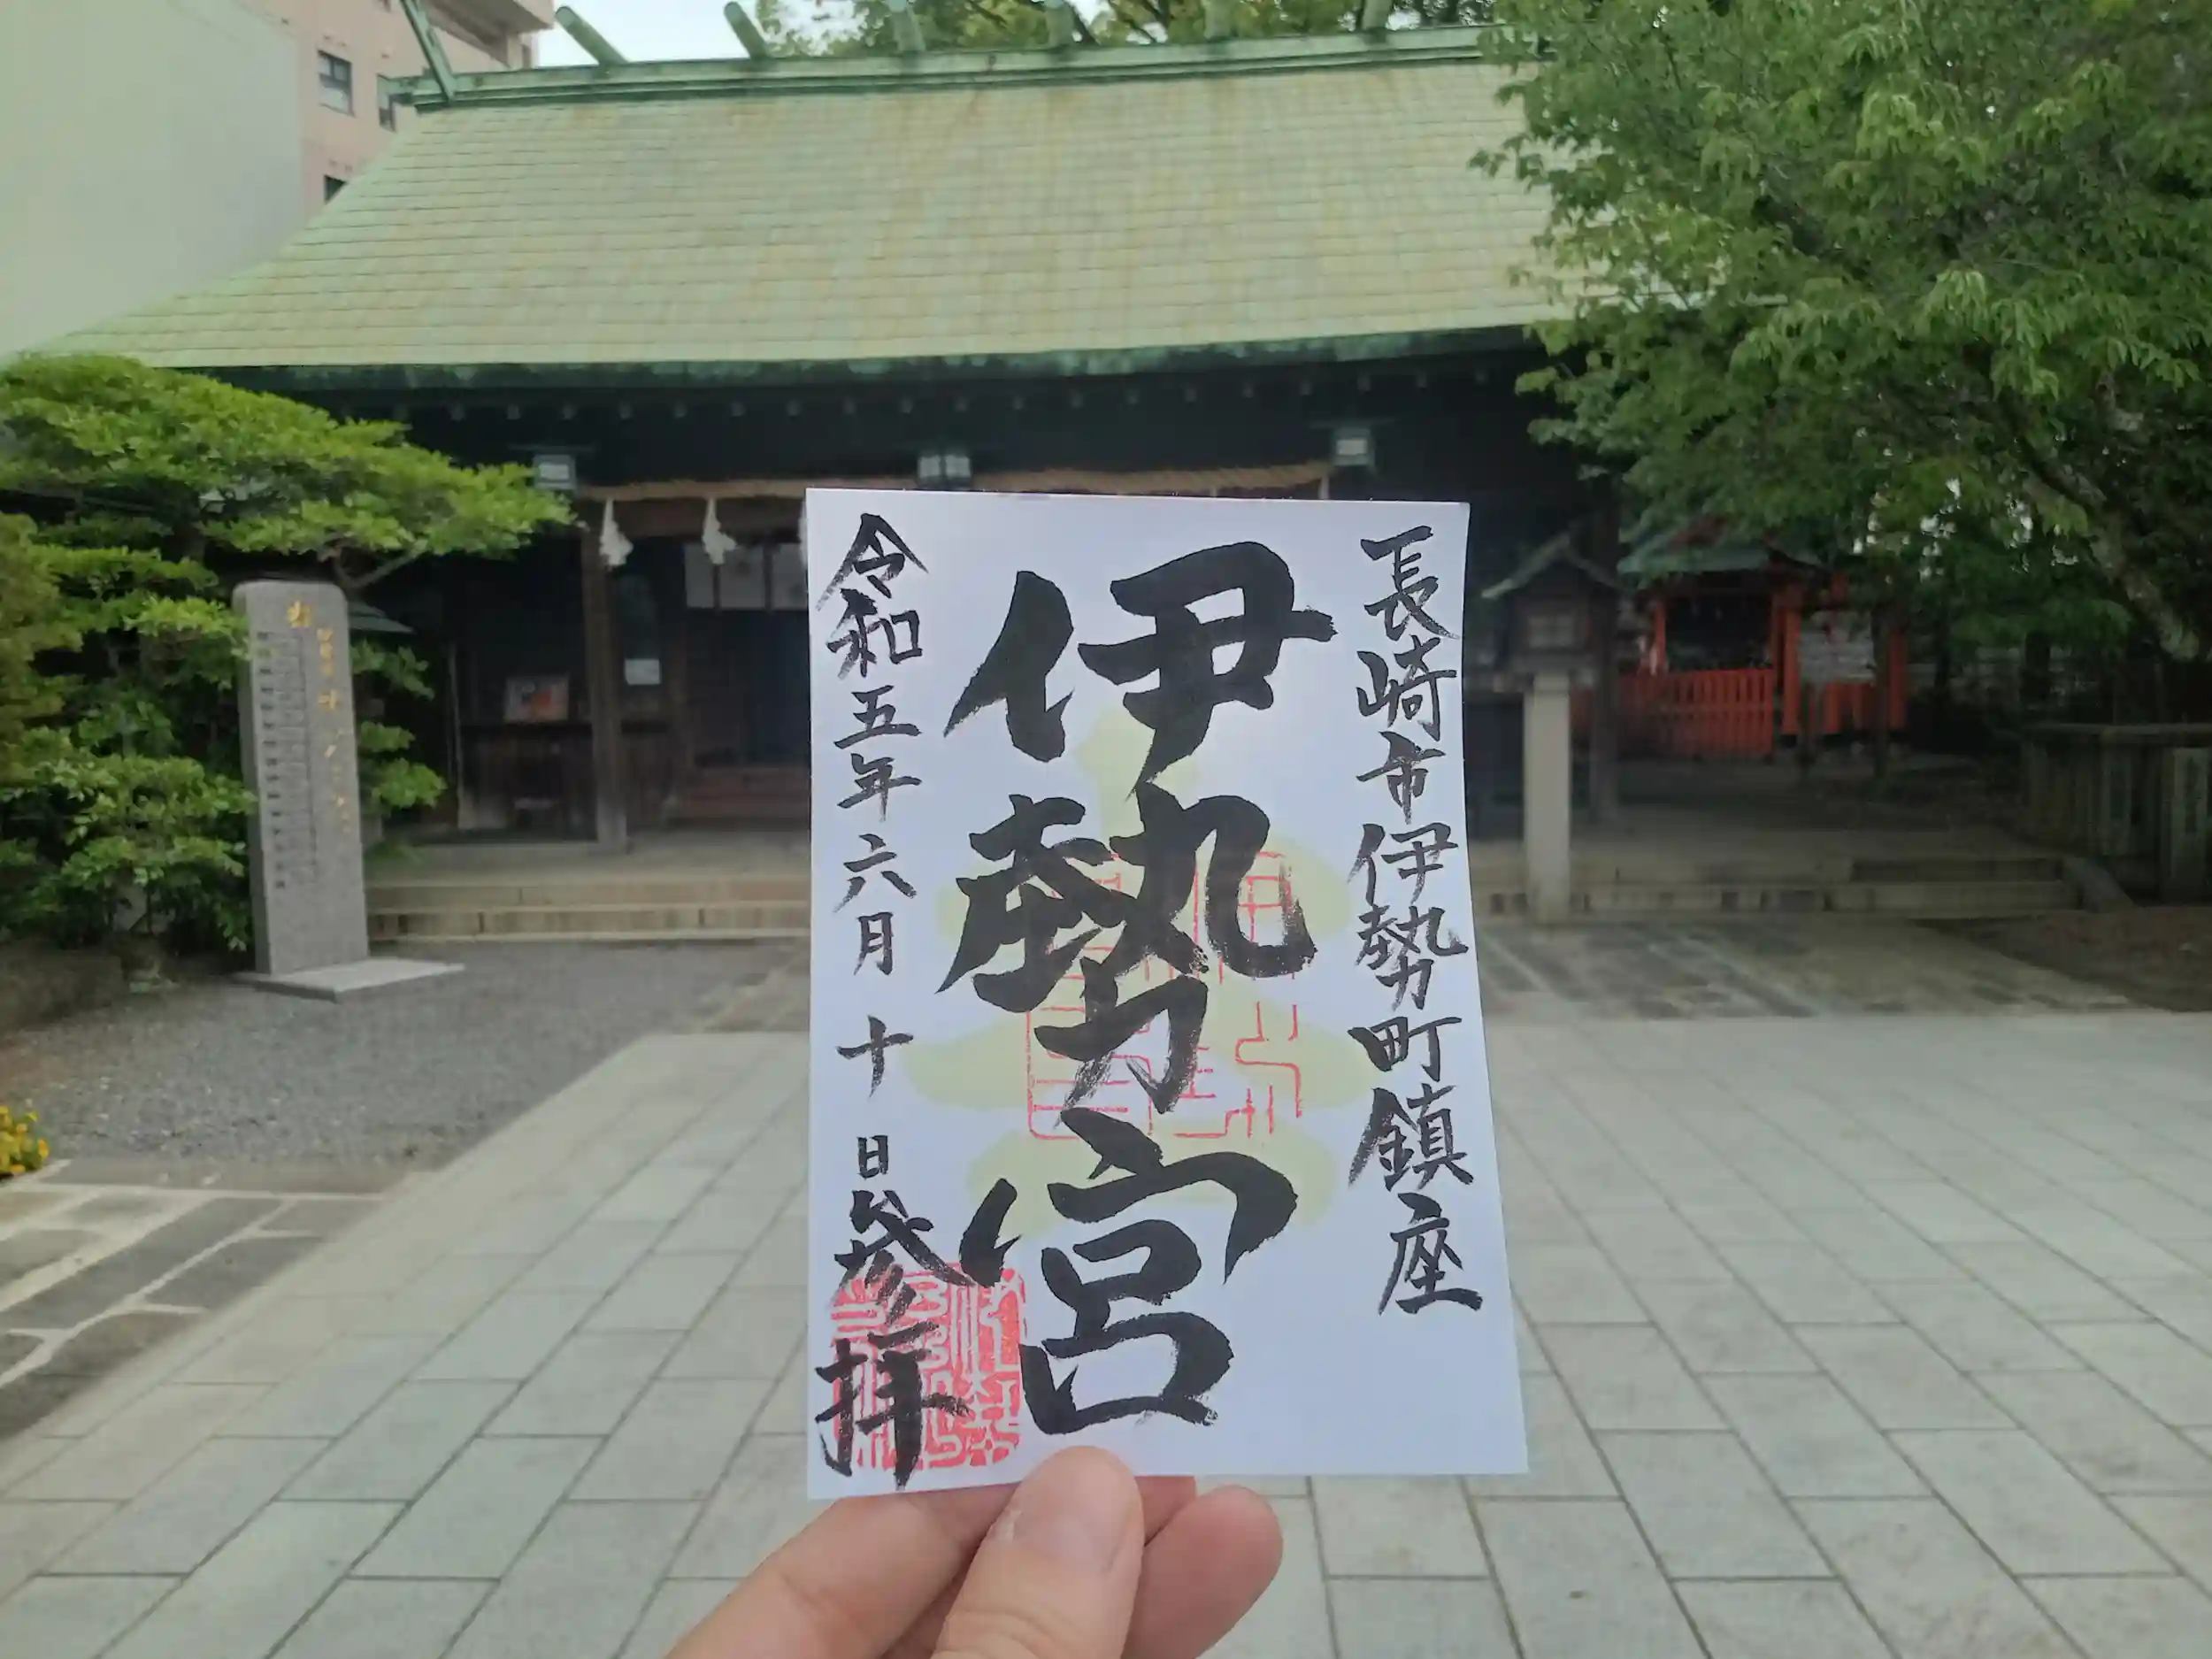 長崎市伊勢町鎮座
伊勢宮
令和五年六月十日参拝